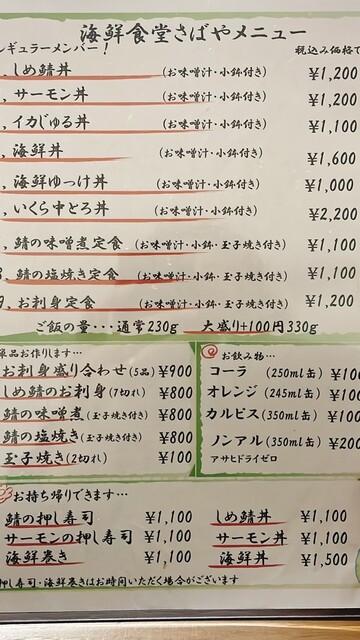 海鮮食堂さばやメニュー
レギュラーメンバー！ 税込み価格で
、しめ鯖丼 (お味噌汁・小鉢付き) ¥1,200
、サーモン丼 (お味噌汁・小鉢付き) ¥1,200
、イカじゅる丼 (お味噌汁・小鉢付き) ¥1,100
、海鮮丼 (お味噌汁・小鉢付き) ¥1,600
、海鮮ゆっけ丼 (お味噌汁・小鉢付き) ¥1,000
、いくら中とろ丼 (お味噌汁・小鉢付き) ¥2,200
、鯖の味噌煮定食 (お味噌汁・小鉢・玉子焼き付き) ¥1,100
8、鯖の塩焼き定食 (お味噌汁・小鉢・玉子焼き付き) ¥1,100
9、お刺身定食 (お味噌汁・小鉢・玉子焼き付き) ¥1,200
ご飯の量・・・通常230g 大盛り+100円330g
単品お作りします…
お刺身盛り合わせ(5品) ¥900
しめ鯖のお刺身(7切れ) ¥800
鯖の味噌煮(玉子焼き付き) ¥800
鯖の塩焼き(玉子焼き付き) ¥800
玉子焼き(2切れ) ¥100
お飲み物…
コーラ (250ml缶) ¥100
オレンジ (245ml缶) ¥100
カルピス(350ml缶) ¥100
ノンアル(350ml缶) ¥200
アサヒドライゼロ
お持ち帰りできます…
鯖の押し寿司 ¥1,100
サーモンの押し寿司 ¥1,100
海鮮巻き ¥1,100
しめ鯖丼 ¥1,100
サーモン丼 ¥1,100
海鮮丼 ¥1,500
押し寿司・海鮮巻きはお時間いただく場合がございます